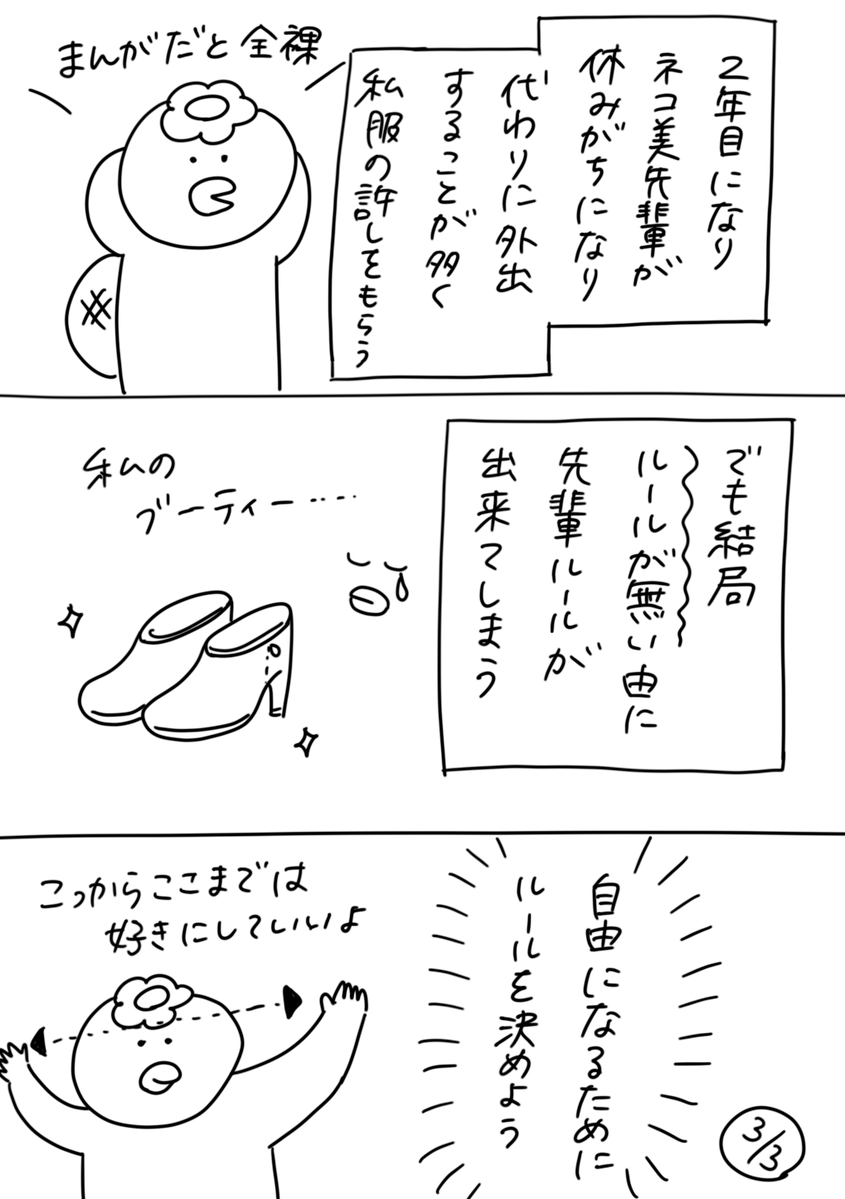 2年目になり
ネコ美先輩が
休みがちになり
代わりに外出
することが多く
私服の許しをもらう
まんがだと全裸
でも結局
ルールが無い由に
先輩ルールが
出来てしまう
私の
ブーティー……
自由になるために
ルールを決めよう
こっからここまでは
好きにしていいよ
3/3